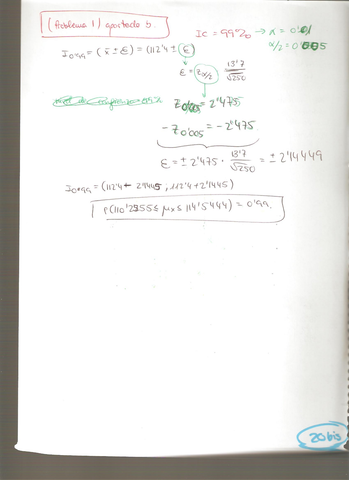 (Problema 1) apartado b.
IC = 99% → α = 0'01
α/2 = 0'005
I0'99 = (x̄ ± ε) = (112'4 ± ε)
ε = Zα/2 13'7/√250
Z0'005 = 2'475
- Z0'005 = - 2'475
ε = ± 2'475 · 13'7/√250 = ± 2'14449
I0'99 = (112'4 - 2'1445, 112'4 + 2'1445)
P(110'2555 ≤ μx ≤ 114'5444) = 0'99.
20 bis